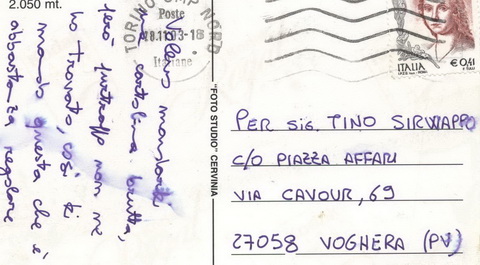 2.050 mt.
Volevo mandarti
una cartolina brutta,
però purtroppo non ne
ho trovato, così ti
mando questa che è
abbastanza regolare
TORINO CMP NORD
Poste
28.11.03-18
Italiane
"FOTO STUDIO" CERVINIA
ITALIA
€ 0,41
PER SIG. TINO SIRWAPPO
C/O PIAZZA AFFARI
VIA CAVOUR, 69
27058 VOGHERA (PV)